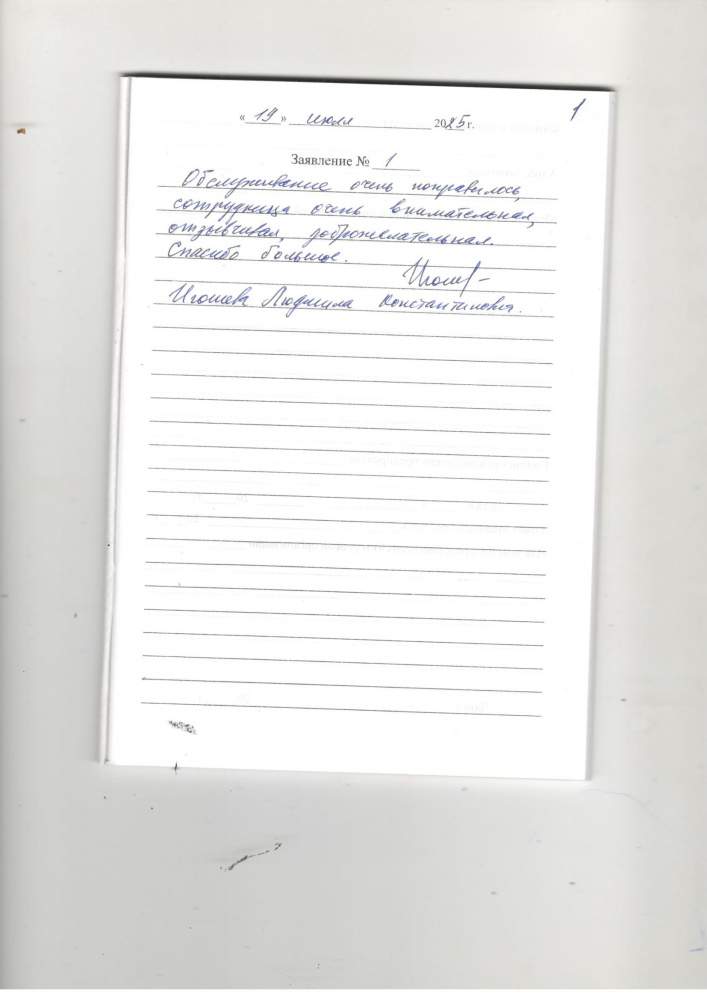 1
« 19 » июля 2025 г.
Заявление № 1
Обслуживание очень понравилось,
сотрудница очень внимательная,
отзывчивая, доброжелательная.
Спасибо большое.
Игошева Людмила Константиновна.